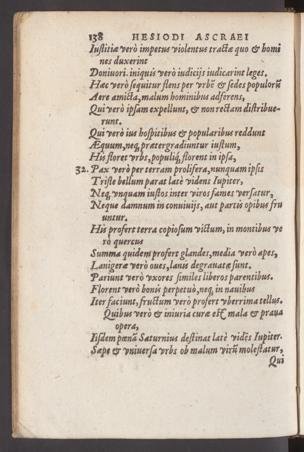 138 HESIODI ASCRAEI
Iustitiæ verò impetus violentus tractæ quo & homi
nes duxerint
Doniuori. iniquis verò iudicijs iudicarint leges.
Hæc verò sequitur flens per vrbē & sedes populorū
Aere amicta, malum hominibus adferens,
Qui verò ipsam expellunt, & non rectam distribue-
runt.
Qui verò ius hospitibus & popularibus reddunt
Æquum, neq; prætergrediuntur iustum,
His floret vrbs, populiq́; florent in ipsa,
32. Pax verò per terram prolifera, nunquam ipsis
Triste bellum parat latè videns Iupiter,
Neq; vnquam iustos inter viros fames versatur,
Neque damnum in conuiuijs, aut partis opibus fru
untur.
His profert terra copiosum victum, in montibus ve
rò quercus
Summa quidem profert glandes, media verò apes,
Lanigeræ verò oues, lanis degrauatæ sunt.
Pariunt verò vxores similes liberos parentibus.
Florent verò bonis perpetuò, neq; in nauibus
Iter faciunt, fructum verò profert vberrima tellus.
Quibus verò & iniuria curæ est & mala & praua
opera,
Iisdem pœnā Saturnius destinat latè vidēs Iupiter.
Sæpe & vniuersa vrbs ob malum virū molestatur,
Qui